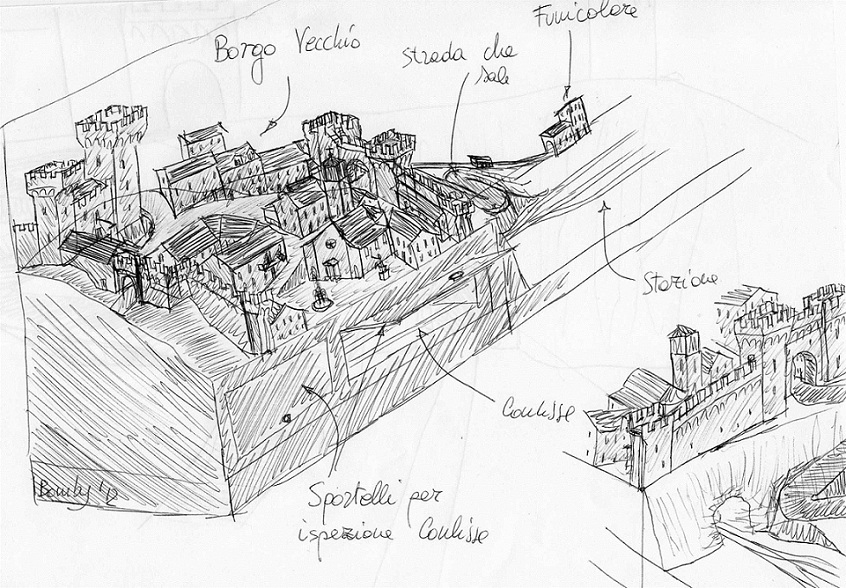 Funicolare
Borgo Vecchio
strada che
sale
Stazione
Coulisse
Sportelli per
ispezione Coulisse